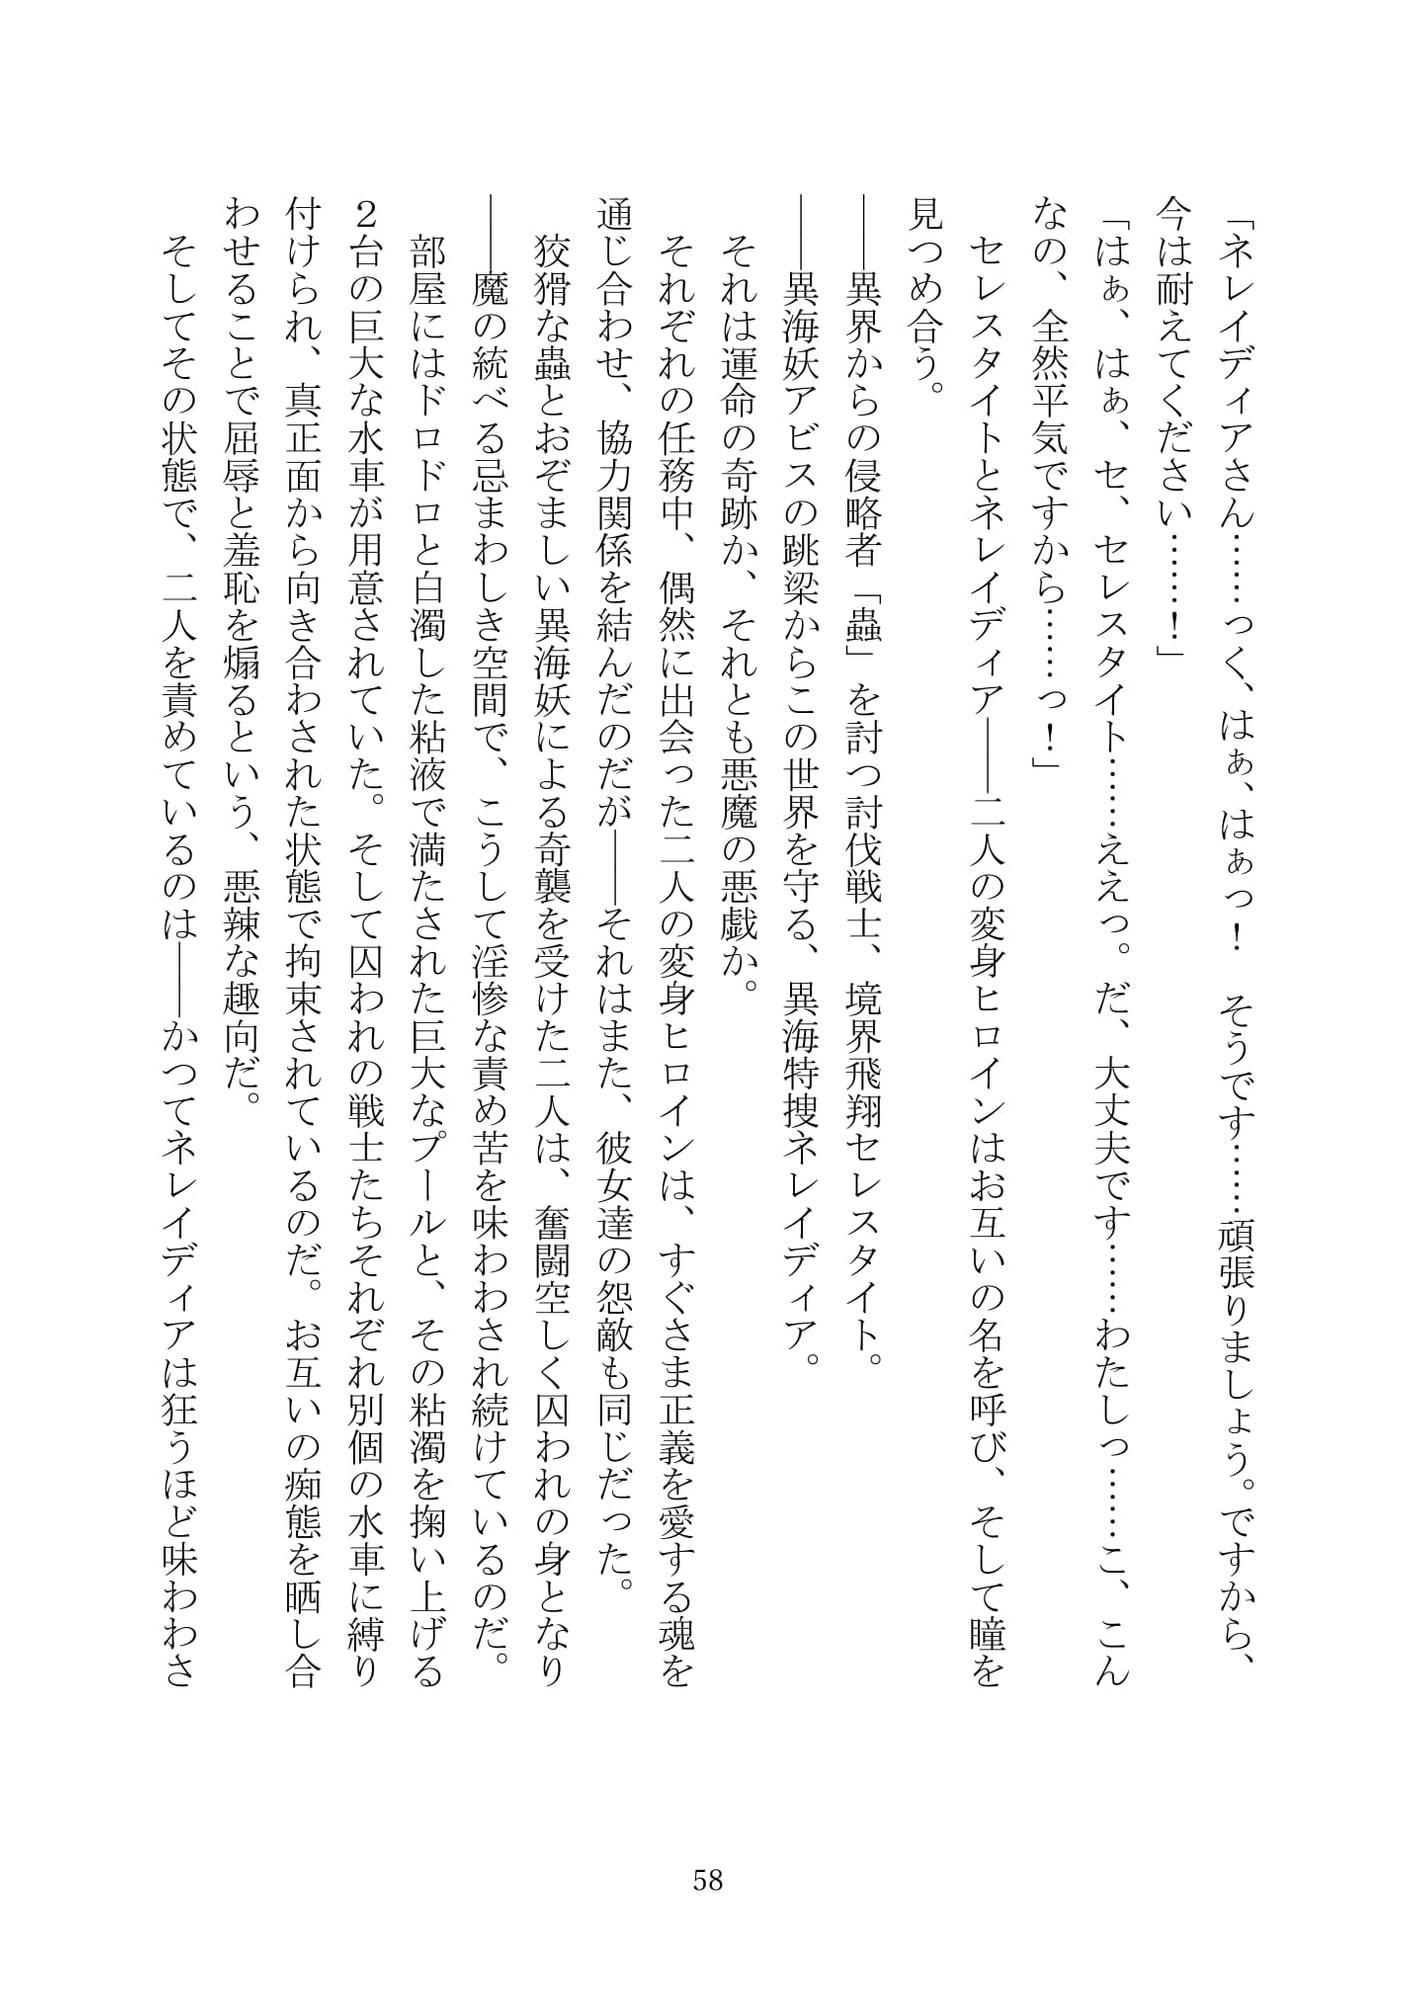 「ネレイディアさん……っく、はぁ、はぁっ！　そうです……頑張りましょう。ですから、
今は耐えてください……！」
「はぁ、はぁ、セ、セレスタイト……ええっ。だ、大丈夫です……わたしっ……こ、こん
なの、全然平気ですから……っ！」
　セレスタイトとネレイディア――二人の変身ヒロインはお互いの名を呼び、そして瞳を
見つめ合う。
――異界からの侵略者「蟲」を討つ討伐戦士、境界飛翔セレスタイト。
――異海妖アビスの跳梁からこの世界を守る、異海特捜ネレイディア。
　それは運命の奇跡か、それとも悪魔の悪戯か。
　それぞれの任務中、偶然に出会った二人の変身ヒロインは、すぐさま正義を愛する魂を
通じ合わせ、協力関係を結んだのだが――それはまた、彼女達の怨敵も同じだった。
　狡猾な蟲とおぞましい異海妖による奇襲を受けた二人は、奮闘空しく囚われの身となり
――魔の統べる忌まわしき空間で、こうして淫惨な責め苦を味わわされ続けているのだ。
　部屋にはドロドロと白濁した粘液で満たされた巨大なプールと、その粘濁を掬い上げる
２台の巨大な水車が用意されていた。そして囚われの戦士たちそれぞれ別個の水車に縛り
付けられ、真正面から向き合わされた状態で拘束されているのだ。お互いの痴態を晒し合
わせることで屈辱と羞恥を煽るという、悪辣な趣向だ。
　そしてその状態で、二人を責めているのは――かつてネレイディアは狂うほど味わわさ
58